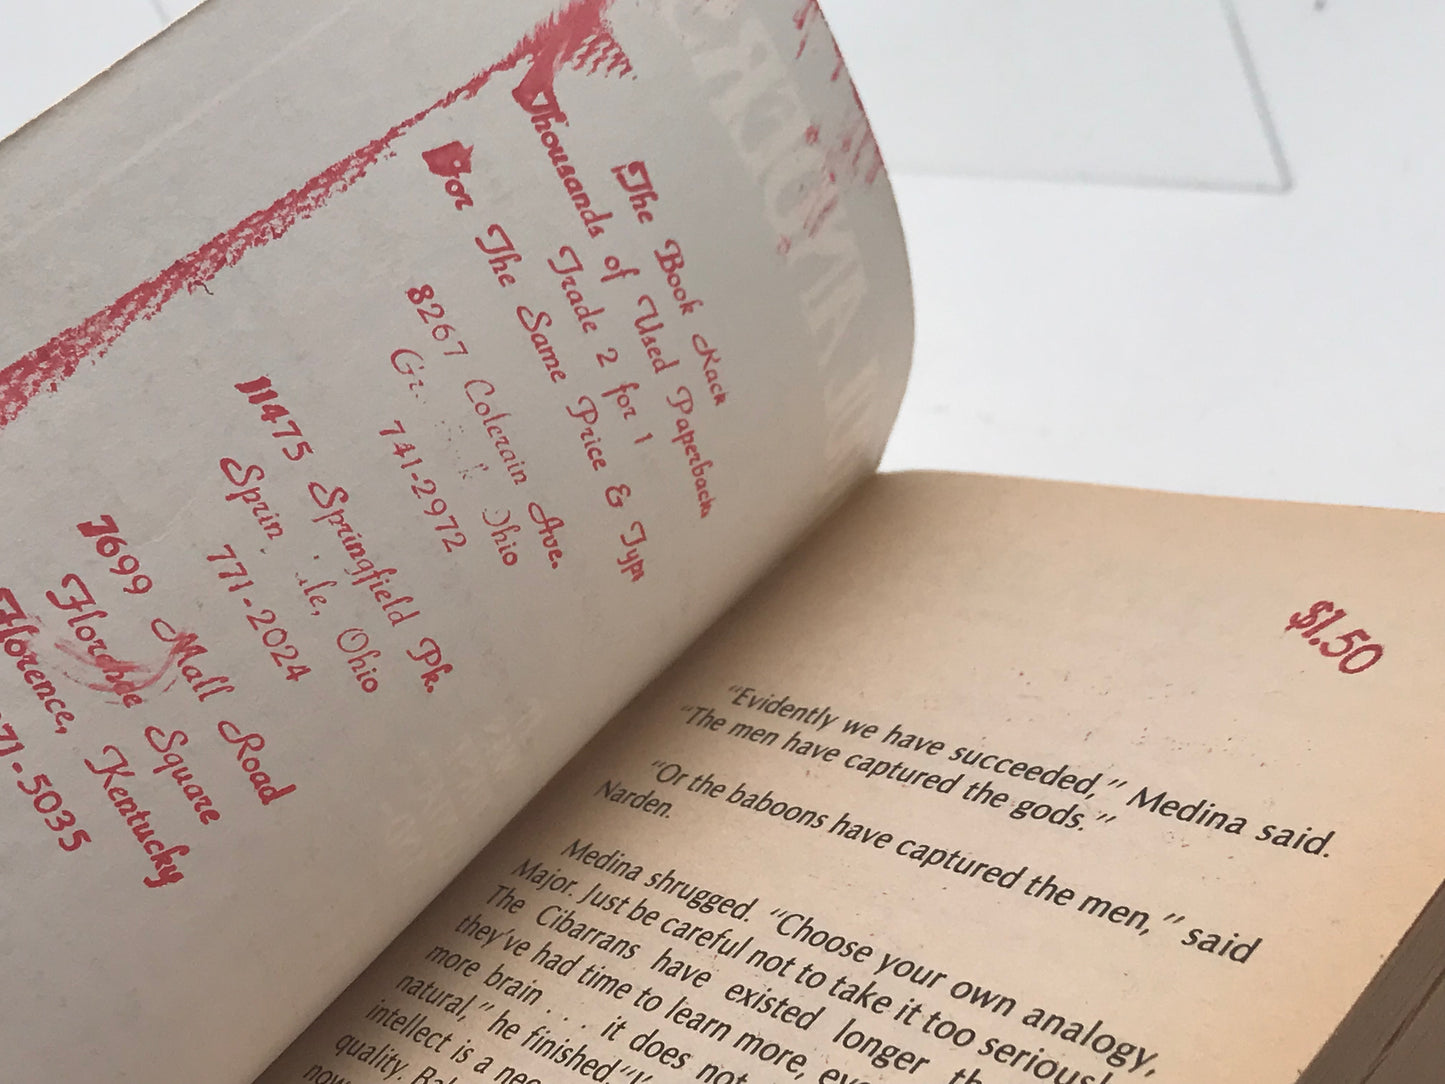 The Book Rack
Thousands of Used Paperbacks
Trade 2 for 1
For The Same Price & Type
8267 Colerain Ave.
Ohio
741-2972
11475 Springfield Pk.
Ohio
771-2024
7699 Mall Road
Florence Square
Florence, Kentucky
71-5035
$1.50
"Evidently we have succeeded," Medina said.
"The men have captured the gods."
"Or the baboons have captured the men," said
Narden.
Medina shrugged. "Choose your own analogy,
Major. Just be careful not to take it too seriousl
The Cibarrans have existed longer th
they've had time to learn more, eve
more brain . . . it does not
natural," he finished.
intellect is a nec
quality.
now